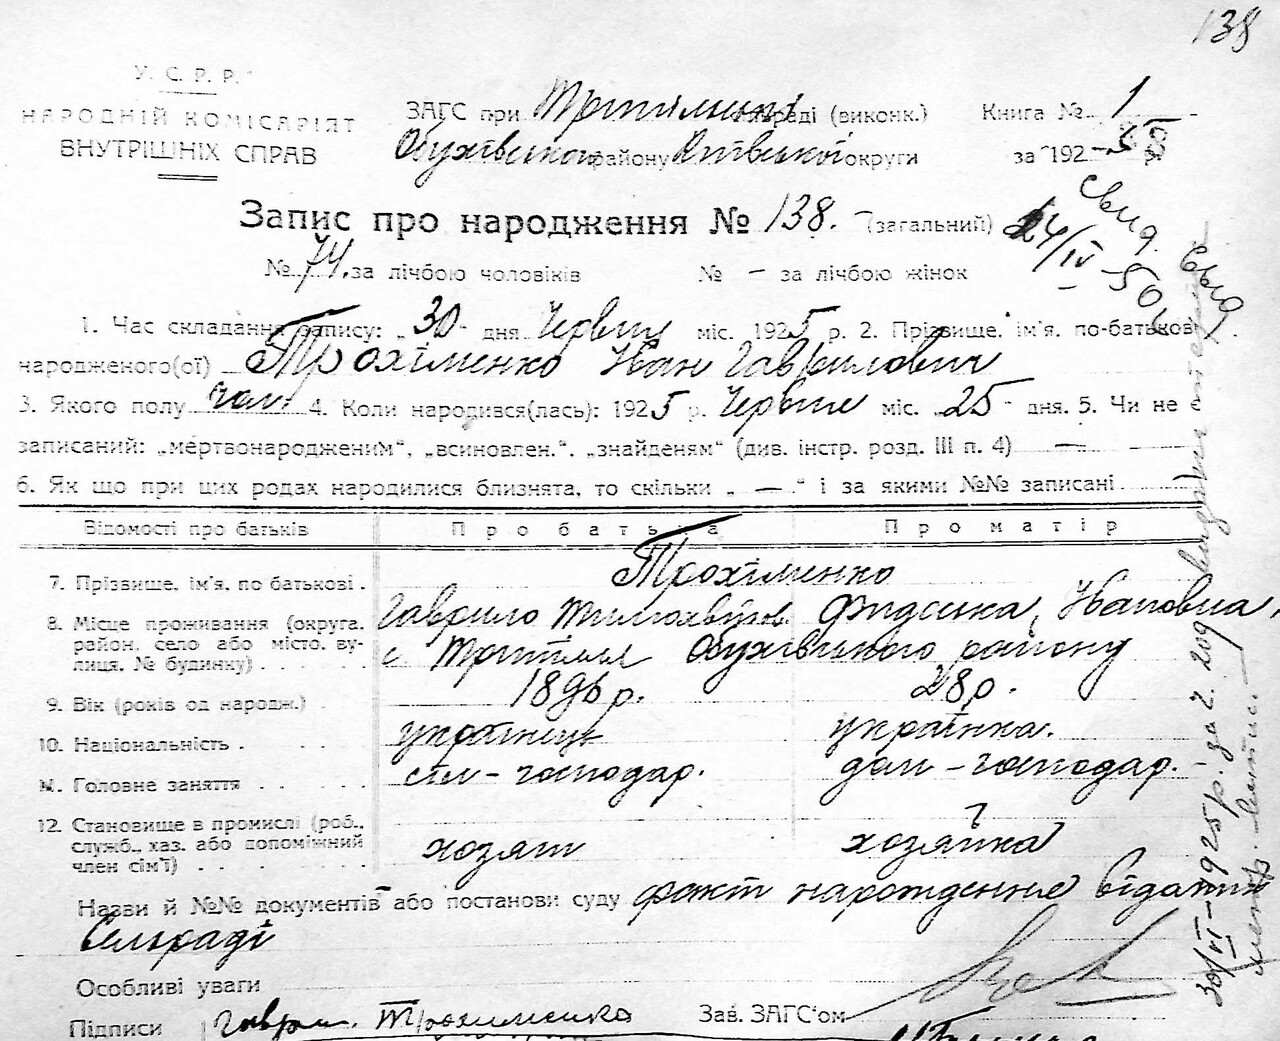 138
У. С. Р. Р.
НАРОДНІЙ КОМІСАРІЯТ
ВНУТРІШНІХ СПРАВ
ЗАГС при раді (виконк.)
Обухівського району Київської округи
Книга № 1
за 192
Запис про народження № 138. (загальний)
№ 74. за лічбою чоловіків № — за лічбою жінок
свид.
24/IV-50
1. Час складання запису: „30" дня Червня міс. 1925 р. 2. Прізвище, ім'я, по-батькові
народженого(ої) Трохименко Іван Гаврилович
3. Якого полу чол. 4. Коли народився(лась): 1925 р. Червня міс. „25" дня. 5. Чи не є
записаний: „мертвонародженим", „всиновлен.", „знайденям" (див. інстр. розд. III п. 4) —
6. Як що при цих родах народилися близнята, то скільки „ — " і за якими №№ записані
Відомості про батьків Про батька Про матір
7. Прізвище, ім'я, по батькові . Трохименко
Гаврило Ивановна,
8. Місце проживання (округа, район, село або місто, вулиця, № будинку) . . . с Обухівського району
9. Вік (років од народж.) . 1896 р. 28 р.
10. Національність . українець українка.
11. Головне заняття сіл-господар. дом-господар.
12. Становище в промислі (роб., служб., хаз. або допоміжний член сім'ї) . . хозяїн хозяйка
Назви й №№ документів або постанови суду факт народження
Сельраді
Особливі уваги
Підписи Гаври. Трохименко Зав. ЗАГС'ом
30/VI-1925 р. за № 209